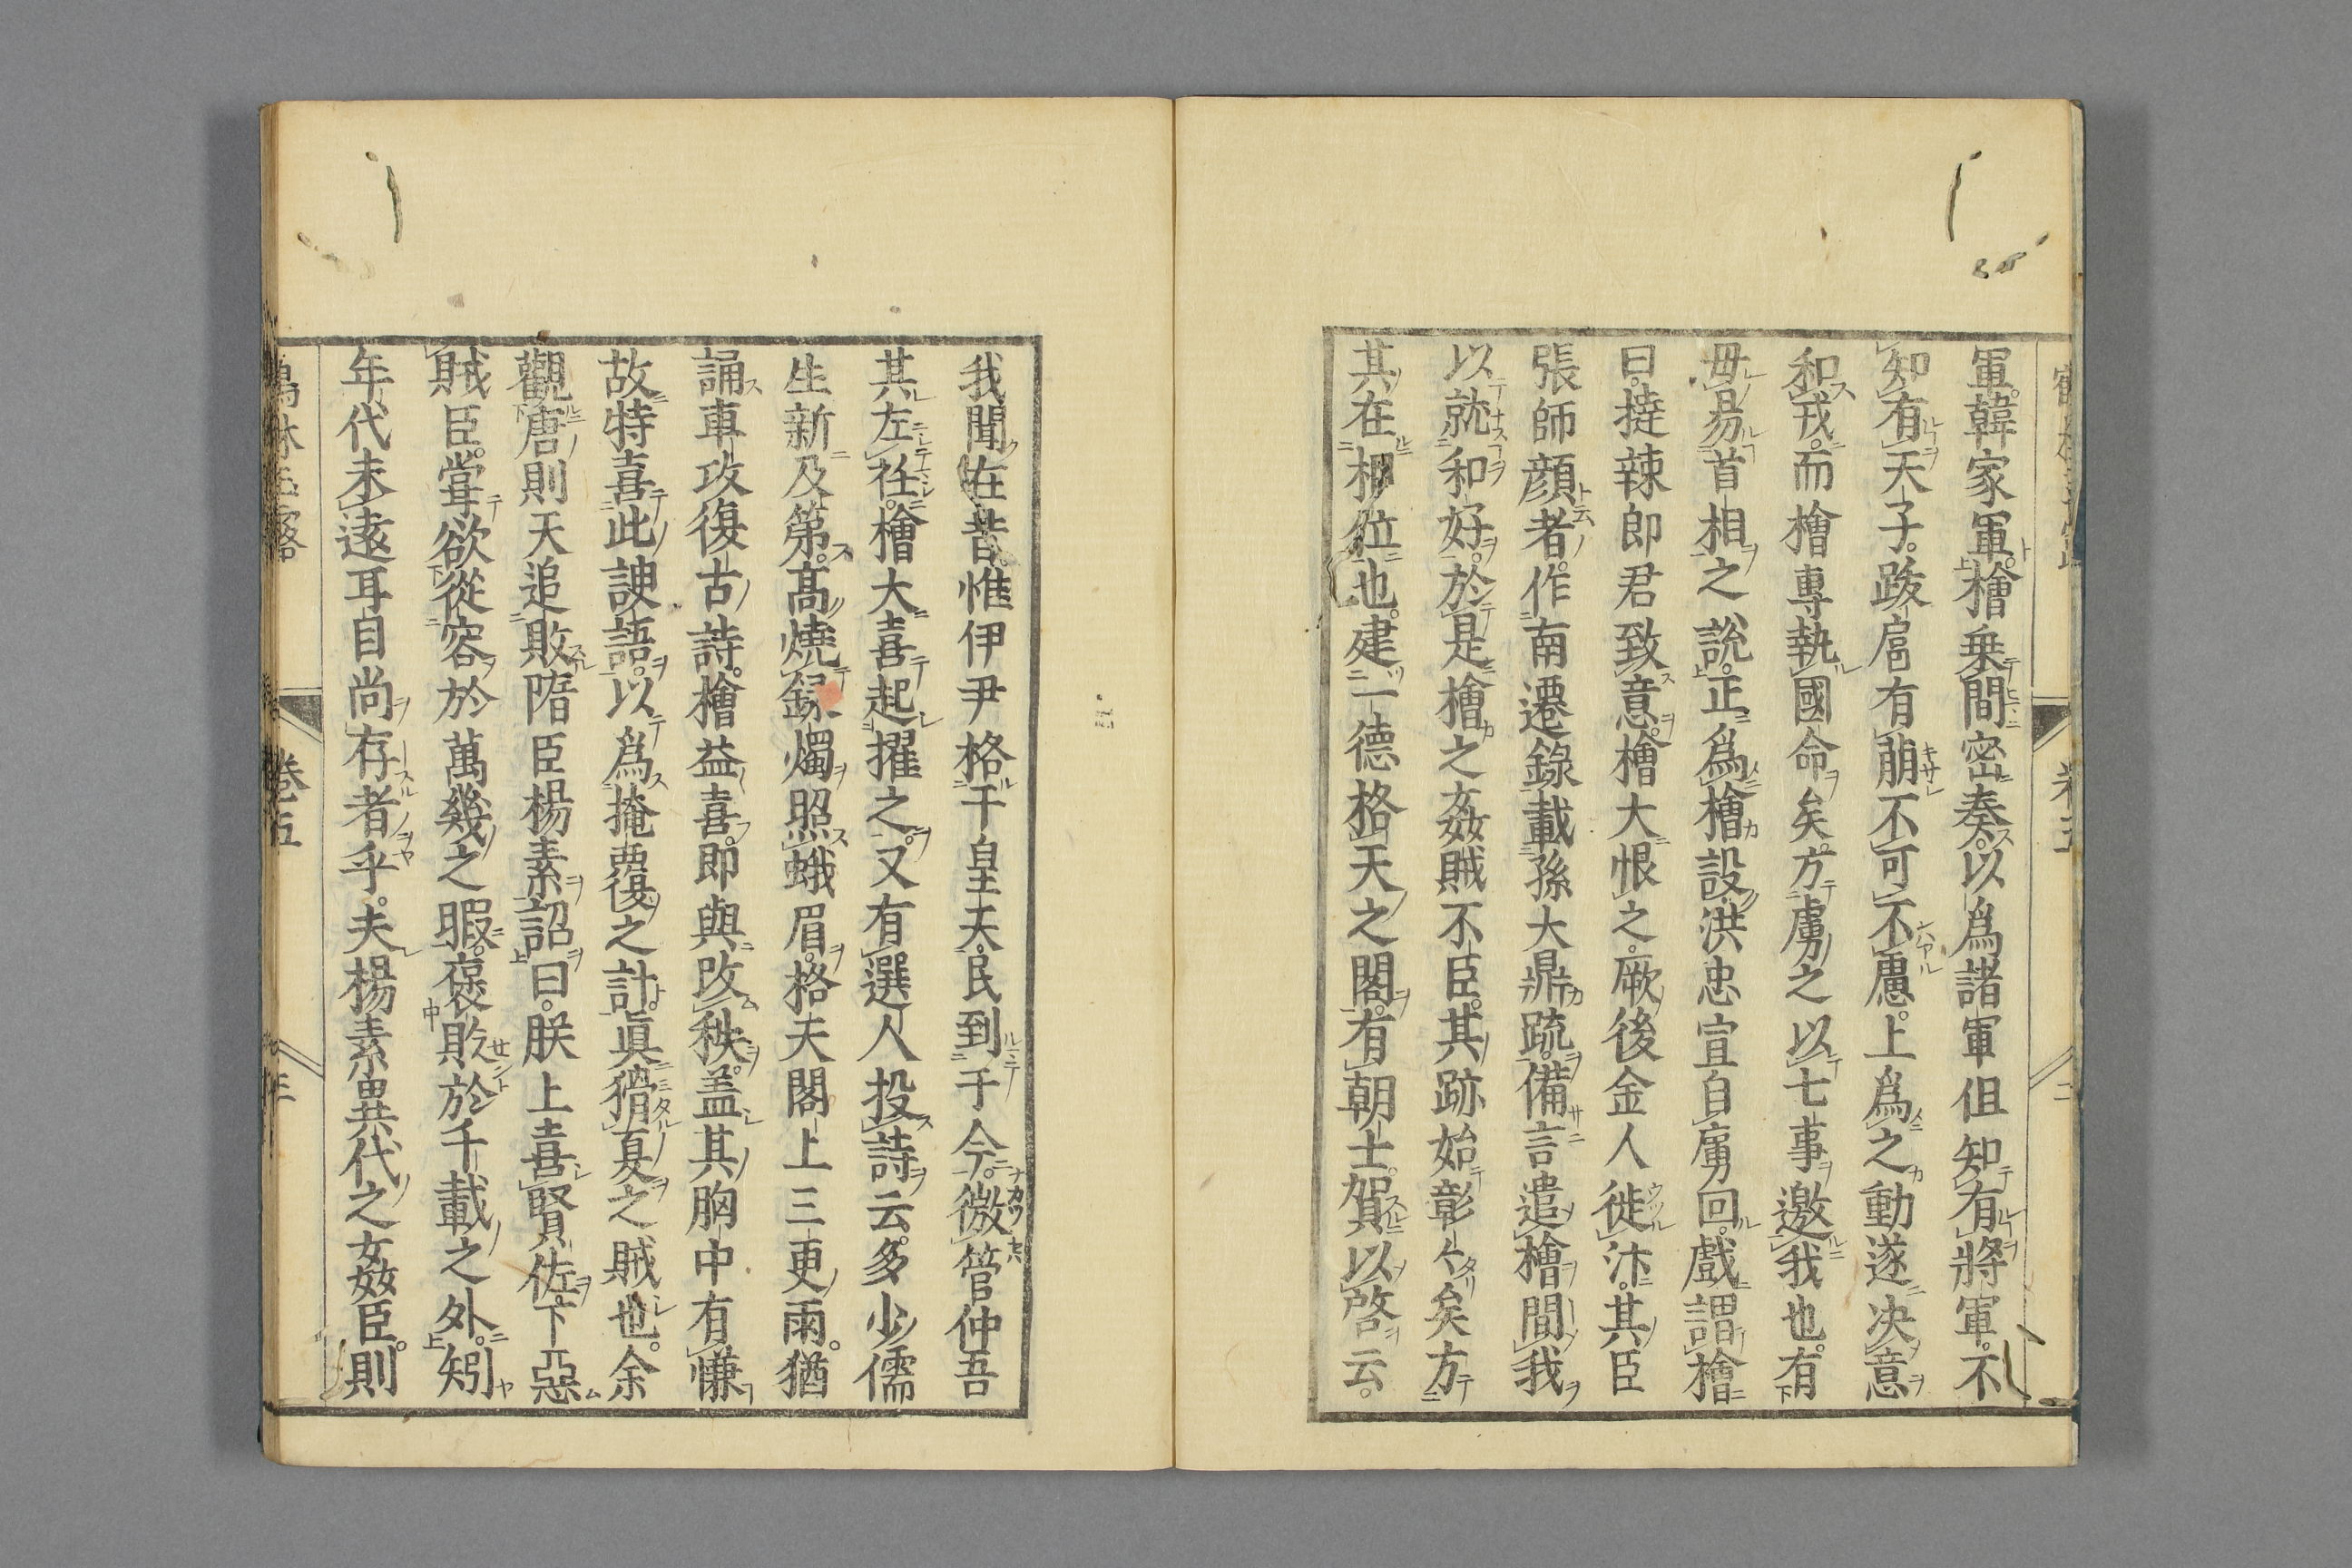 軍。韓家軍。檜乗間密奏。以爲諸軍但知有將軍。不
知有天子。跋扈有萠不可不慮。上爲之動遂决意
和戎。而檜專執國命矣。方虜之以七事邀我也。有
毋易首相之說。正爲檜設。洪忠宣自虜回。戲謂檜
曰。撻辣郎君致意。檜大恨之。厥後金人徙汴。其臣
張師顔者。作南遷錄。載孫大鼎疏。備言遣檜間我
以就和好。於是檜之姦賊不臣。其跡始彰々矣方
其在相位也。建一德格天之閣。有朝士賀以啓云。
我聞在昔。惟伊尹格于皇天。民到于今。微管仲吾
其左衽。檜大喜起擢之。又有選人投詩云。多少儒
生新及第。高燒錄燭照蛾眉。格天閣上三更雨。猶
誦車攻復古詩。檜益喜。即與改秩。盖其胸中有慊
故特喜此諛語。以爲掩覆之計。眞猾夏之賊也。余
觀唐則天追貶隋臣楊素詔曰。朕上喜賢佐。下惡
賊臣。甞欲從容於萬幾之暇。褒貶於千載之外。矧
年代未遠耳目尚存者乎。夫楊素異代之姦臣。則
卷五